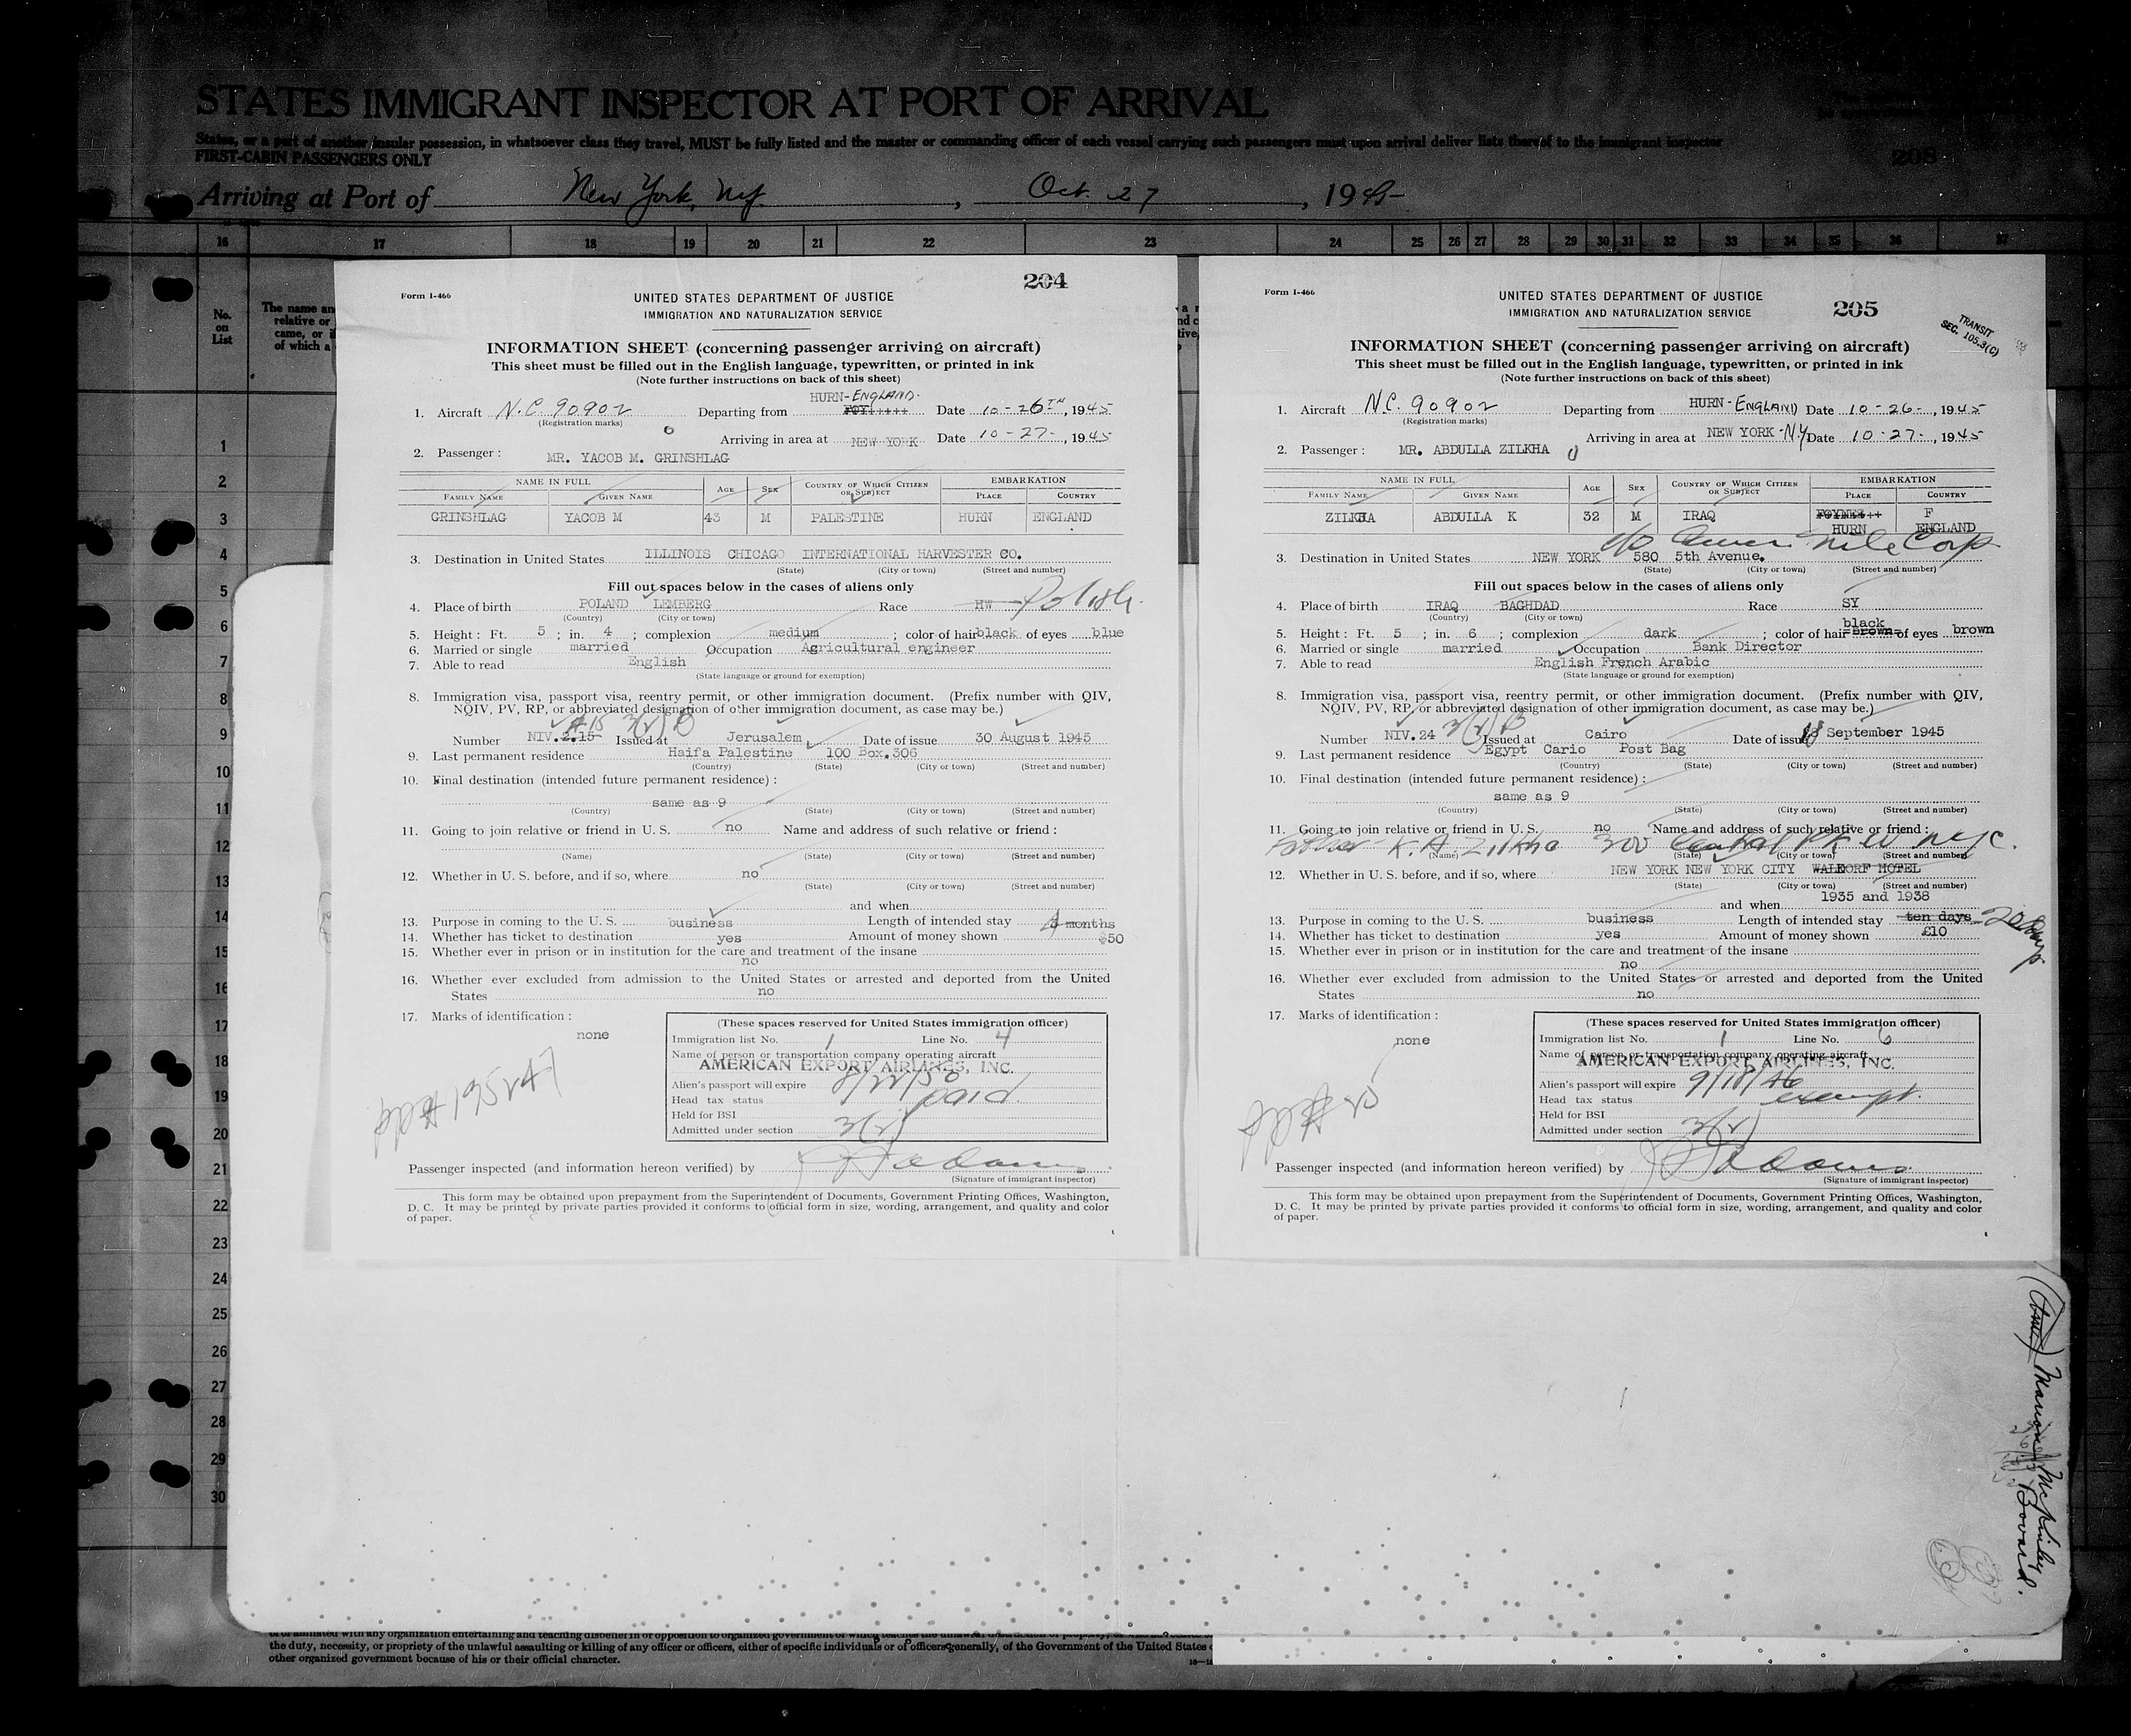 STATES IMMIGRANT INSPECTOR AT PORT OF ARRIVAL
States, or a part of another insular possession, in whatsoever class they travel, MUST be fully listed and the master or commanding officer of each vessel carrying such passengers must upon arrival deliver lists thereof to the immigrant inspector
FIRST-CABIN PASSENGERS ONLY
208
Arriving at Port of New York, Oct. 27, 1945
16 17 18 19 20 21 22 23 24 25 26 27 28 29 30 31 32 33 34 35 36 37
No. on List
The name an
relative or
came, or i
of which a
1
2
3
4
5
6
7
8
9
10
11
12
13
14
15
16
17
18
19
20
21
22
23
24
25
26
27
28
29
30
204
Form I-466
UNITED STATES DEPARTMENT OF JUSTICE
IMMIGRATION AND NATURALIZATION SERVICE
INFORMATION SHEET (concerning passenger arriving on aircraft)
This sheet must be filled out in the English language, typewritten, or printed in ink
(Note further instructions on back of this sheet)
HURN-ENGLAND.
1. Aircraft N.C. 90902 Departing from Date 10-26TH, 1945
(Registration marks)
Arriving in area at NEW YORK Date 10-27-, 1945
2. Passenger: MR. YACOB M. GRINSHLAG
NAME IN FULL AGE SEX COUNTRY OF WHICH CITIZEN OR SUBJECT EMBARKATION
FAMILY NAME GIVEN NAME PLACE COUNTRY
GRINSHLAG YACOB M 43 M PALESTINE HURN ENGLAND
3. Destination in United States ILLINOIS CHICAGO INTERNATIONAL HARVESTER CO.
(State) (City or town) (Street and number)
Fill out spaces below in the cases of aliens only
4. Place of birth POLAND LEMBERG Race HW Polish.
(Country) (City or town)
5. Height: Ft. 5; in. 4; complexion medium; color of hair black of eyes blue
6. Married or single married Occupation Agricultural engineer
7. Able to read English
(State language or ground for exemption)
8. Immigration visa, passport visa, reentry permit, or other immigration document. (Prefix number with QIV,
NQIV, PV, RP, or abbreviated designation of other immigration document, as case may be.)
#15 3(2) B
Number NIV.2.15 Issued at Jerusalem Date of issue 30 August 1945
9. Last permanent residence Haifa Palestine 100 Box.306
(Country) (State) (City or town) (Street and number)
10. Final destination (intended future permanent residence):
same as 9
(Country) (State) (City or town) (Street and number)
11. Going to join relative or friend in U. S. no Name and address of such relative or friend:
(Name) (State) (City or town) (Street and number)
12. Whether in U. S. before, and if so, where no
(State) (City or town) (Street and number)
and when
13. Purpose in coming to the U. S. business Length of intended stay months
14. Whether has ticket to destination yes Amount of money shown $50
15. Whether ever in prison or in institution for the care and treatment of the insane
no
16. Whether ever excluded from admission to the United States or arrested and deported from the United
States no
17. Marks of identification:
none
(These spaces reserved for United States immigration officer)
Immigration list No. 1 Line No. 4
Name of person or transportation company operating aircraft
AMERICAN EXPORT AIRLINES, INC.
Alien's passport will expire 8/22/50
Head tax status paid
Held for BSI
Admitted under section 3(2)
Passenger inspected (and information hereon verified) by Adams
(Signature of immigrant inspector)
This form may be obtained upon prepayment from the Superintendent of Documents, Government Printing Offices, Washington,
D. C. It may be printed by private parties provided it conforms to official form in size, wording, arrangement, and quality and color
of paper.
205
TRANSIT
SEC. 105.3(C)
Form I-466
UNITED STATES DEPARTMENT OF JUSTICE
IMMIGRATION AND NATURALIZATION SERVICE
INFORMATION SHEET (concerning passenger arriving on aircraft)
This sheet must be filled out in the English language, typewritten, or printed in ink
(Note further instructions on back of this sheet)
1. Aircraft N.C. 90902 Departing from HURN-ENGLAND Date 10-26-, 1945
(Registration marks)
Arriving in area at NEW YORK-NY Date 10-27-, 1945
2. Passenger: MR. ABDULLA ZILKHA
NAME IN FULL AGE SEX COUNTRY OF WHICH CITIZEN OR SUBJECT EMBARKATION
FAMILY NAME GIVEN NAME PLACE COUNTRY
ZILKHA ABDULLA K 32 M IRAQ FOYNES++ F
HURN ENGLAND
3. Destination in United States NEW YORK 580 5th Avenue. Nile Corp
(State) (City or town) (Street and number)
Fill out spaces below in the cases of aliens only
4. Place of birth IRAQ BAGHDAD Race SY
(Country) (City or town)
black
5. Height: Ft. 5; in. 6; complexion dark; color of hair =brown= of eyes brown
6. Married or single married Occupation Bank Director
7. Able to read English French Arabic
(State language or ground for exemption)
8. Immigration visa, passport visa, reentry permit, or other immigration document. (Prefix number with QIV,
NQIV, PV, RP, or abbreviated designation of other immigration document, as case may be.)
3(2) B
Number NIV.24 Issued at Cairo Date of issue 18 September 1945
9. Last permanent residence Egypt Cario Post Bag
(Country) (State) (City or town) (Street and number)
10. Final destination (intended future permanent residence):
same as 9
(Country) (State) (City or town) (Street and number)
11. Going to join relative or friend in U. S. no Name and address of such relative or friend:
Father K. A. Zilkha 300 Central Pk W NYC.
(Name) (State) (City or town) (Street and number)
12. Whether in U. S. before, and if so, where NEW YORK NEW YORK CITY WALDORF HOTEL
(State) (City or town) (Street and number)
and when 1935 and 1938
13. Purpose in coming to the U. S. business Length of intended stay ten days 20 days
14. Whether has ticket to destination yes Amount of money shown £10
15. Whether ever in prison or in institution for the care and treatment of the insane
no
16. Whether ever excluded from admission to the United States or arrested and deported from the United
States no
17. Marks of identification:
none
(These spaces reserved for United States immigration officer)
Immigration list No. 1 Line No. 6
Name of person or transportation company operating aircraft
AMERICAN EXPORT AIRLINES, INC.
Alien's passport will expire 9/18/46
Head tax status exempt.
Held for BSI
Admitted under section 3(2)
Passenger inspected (and information hereon verified) by Adams
(Signature of immigrant inspector)
This form may be obtained upon prepayment from the Superintendent of Documents, Government Printing Offices, Washington,
D. C. It may be printed by private parties provided it conforms to official form in size, wording, arrangement, and quality and color
of paper.
Bovard.
the duty, necessity, or propriety of the unlawful assaulting or killing of any officer or officers, either of specific individuals or of officers generally, of the Government of the United States
other organized government because of his or their official character.